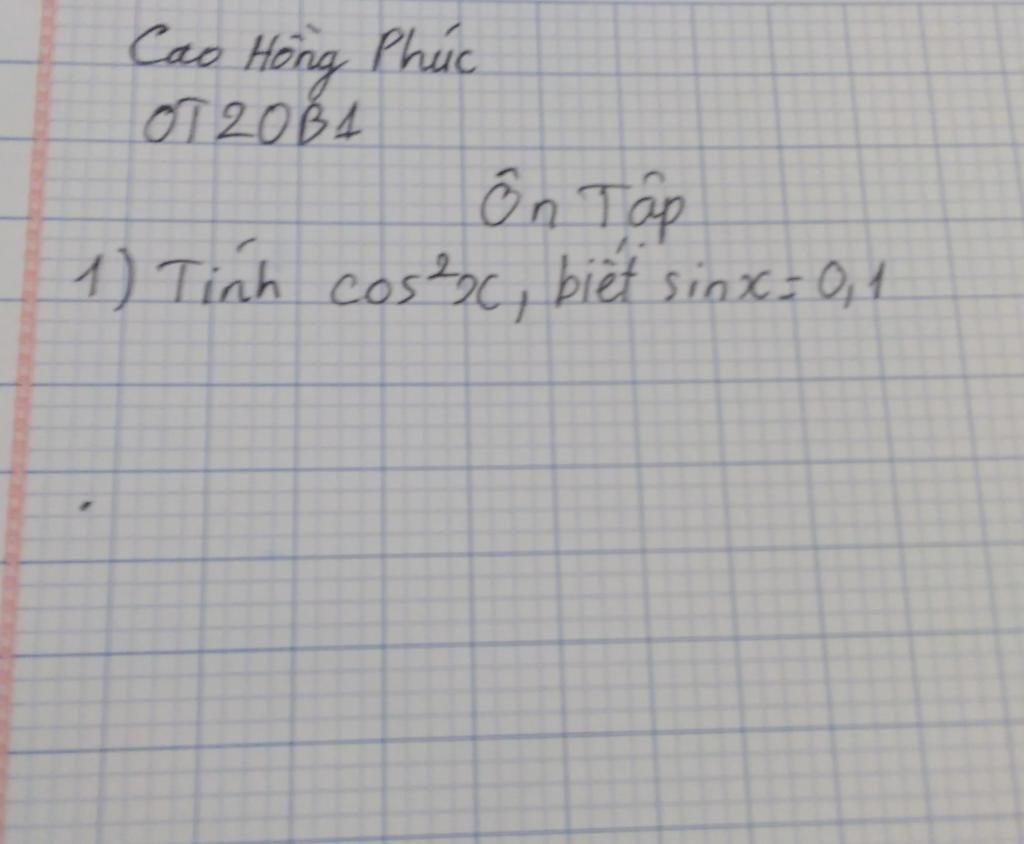 Cao Hồng Phúc
OT20B1
Ôn Tập
1) Tính cos²x, biết sinx = 0,1